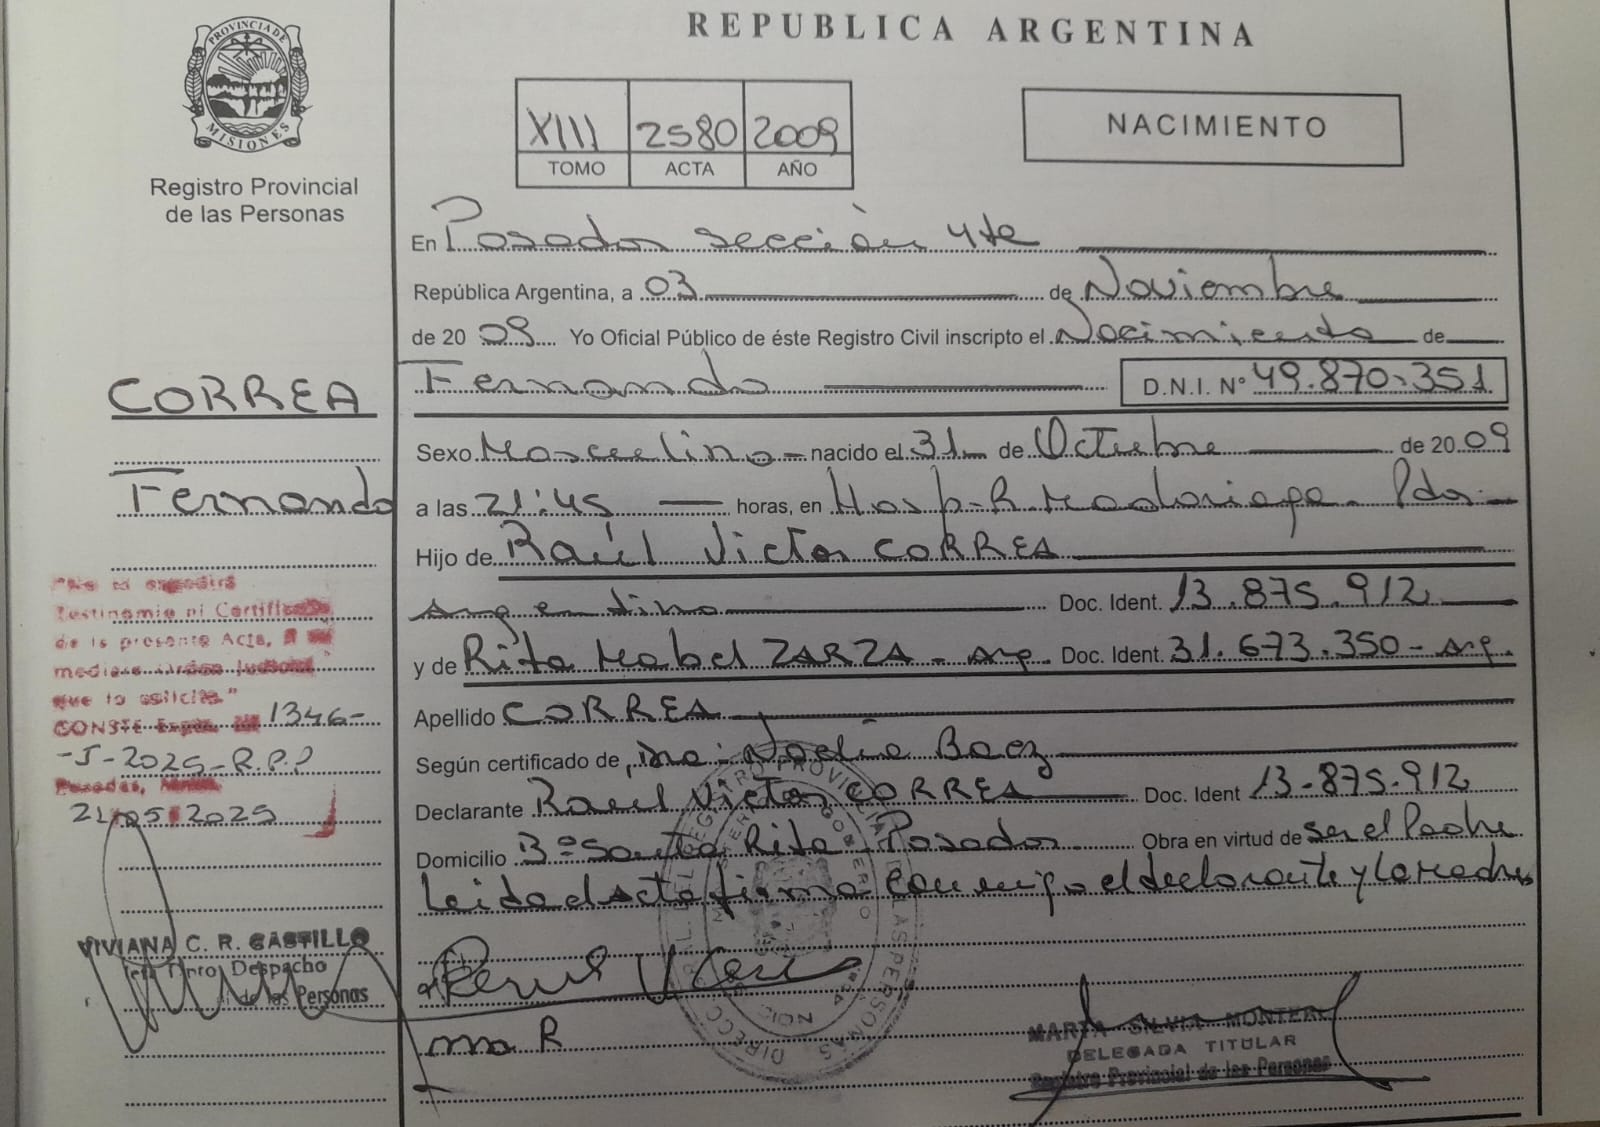 PROVINCIA DE
MISIONES
Registro Provincial
de las Personas
REPUBLICA ARGENTINA
XIII 2580 2009
TOMO ACTA AÑO
NACIMIENTO
En Posadas sección 4ta
República Argentina, a 03 de Noviembre
de 2009 Yo Oficial Público de éste Registro Civil inscripto el Nacimiento de
Fernando D.N.I. N° 49.870.351
CORREA
Fernando
Sexo Masculino nacido el 31 de Octubre de 2009
a las 21:45 horas, en Hosp. R. Madariaga - Pdas
Hijo de Raúl Victor CORREA
Argentino Doc. Ident. 13.875.912
y de Rita Mabel ZARZA - Arg. Doc. Ident. 31.673.350 - Arg.
Apellido CORREA
Según certificado de Dra. Noelia Baez
Declarante Raúl Victor CORREA Doc. Ident 13.875.912
Domicilio B° Santa Rita Posadas Obra en virtud de ser el Padre
Leida el Acta firma conmigo el declarante y la madre
"No se expedirá
Testimonio ni Certificado
de la presente Acta,
mediare Orden Judicial
que lo solicite."
CONSTE Expte. Nº 1346-
-J-2025-R.P.P
Posadas,
21 05 2025
VIVIANA C. R. CASTILLO
Despacho
de las Personas
REGISTRO PROVINCIAL DE LAS PERSONAS
MARTA SILVIA MONTERO
DELEGADA TITULAR
Registro Provincial de las Personas